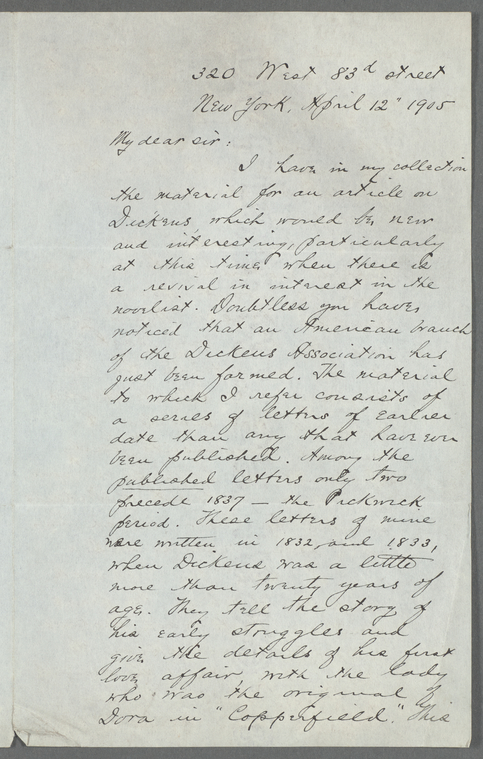 320 West 83d street
New York, April 12" 1905
My dear sir:
I have in my collection
the material for an article on
Dickens, which would be new
and interesting, particularly
at this time when there is
a revival in interest in the
novelist. Doubtless you have
noticed that an American branch
of the Dickens Association has
just been formed. The material
to which I refer consists of
a series of letters of earlier
date than any that have ever
been published. Among the
published letters only two
precede 1837 — the Pickwick
period. These letters of mine
were written in 1832, and 1833,
when Dickens was a little
more than twenty years of
age. They tell the story of
his early struggles and
give the details of his first
love affair, with the lady
who was the original of
Dora in "Copperfield." This